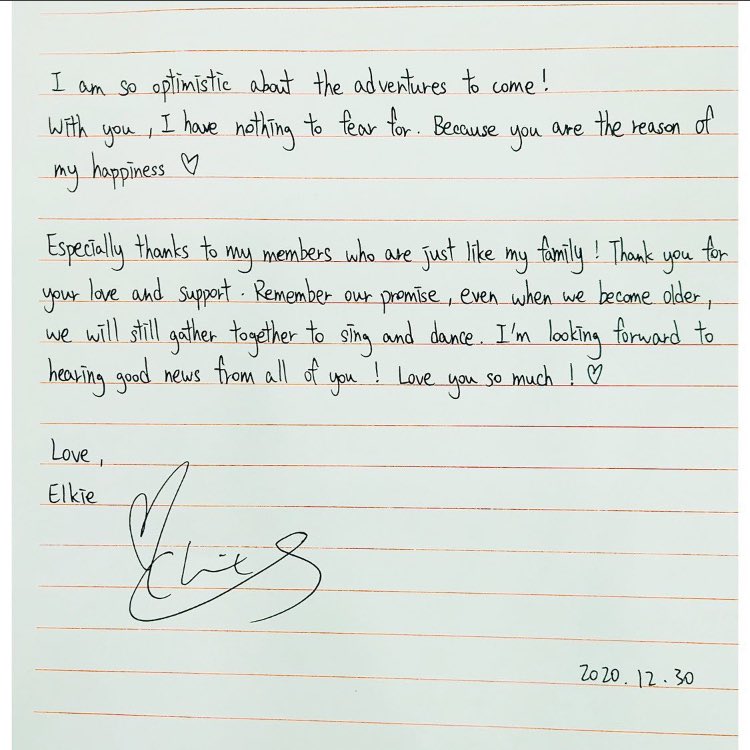 I am so optimistic about the adventures to come!
With you, I have nothing to fear for. Because you are the reason of
my happiness ♡
Especially thanks to my members who are just like my family! Thank you for
your love and support. Remember our promise, even when we become older,
we will still gather together to sing and dance. I'm looking forward to
hearing good news from all of you! Love you so much! ♡
Love,
Elkie
2020.12.30